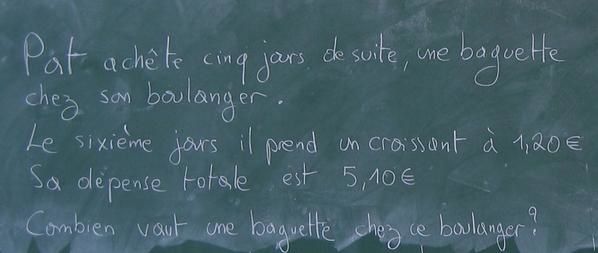 Pat achête cinq jars de suite, une baguette
chez son boulanger.
Le sixième jours il prend un croissant à 1,20 €
Sa dépense totale est 5,10 €
Combien vaut une baguette chez ce boulanger?